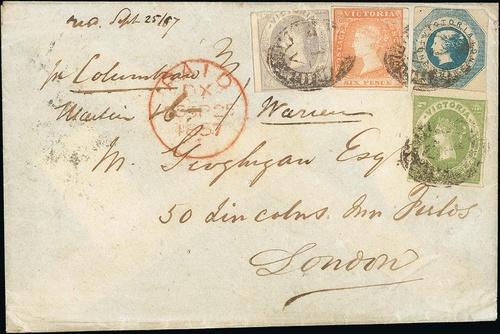 recd. Sept 25/57
VICTORIA
VICTORIA
SIX PENCE
VICTORIA
VICTORIA
pr Columbian
PAID
1857
Martin
Warren
M. Geoghegan Esq
50 Lincolns Inn Fields
London